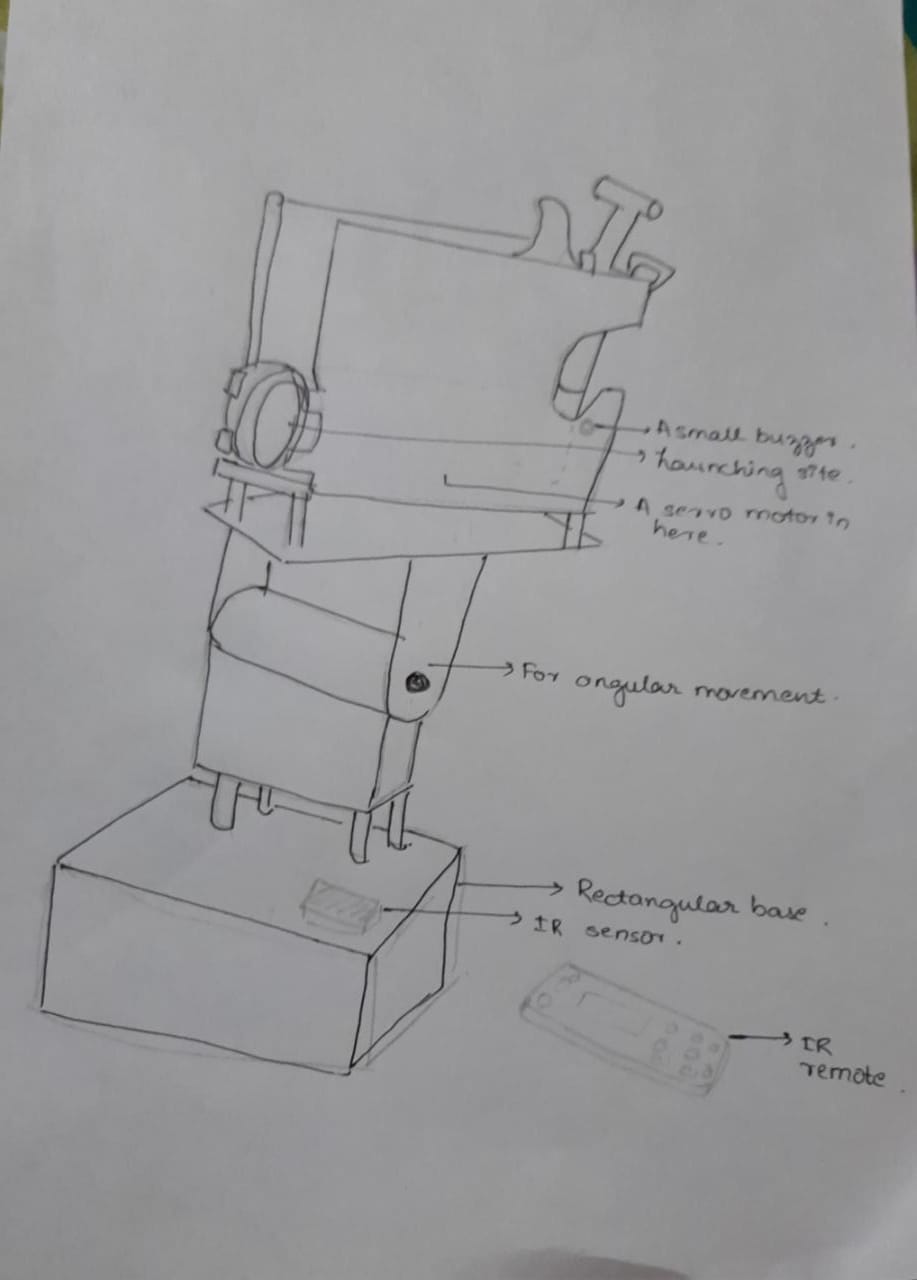 A small buzzer.
Launching site.
A servo motor in
here.
For angular movement.
Rectangular base.
IR sensor.
IR
remote.